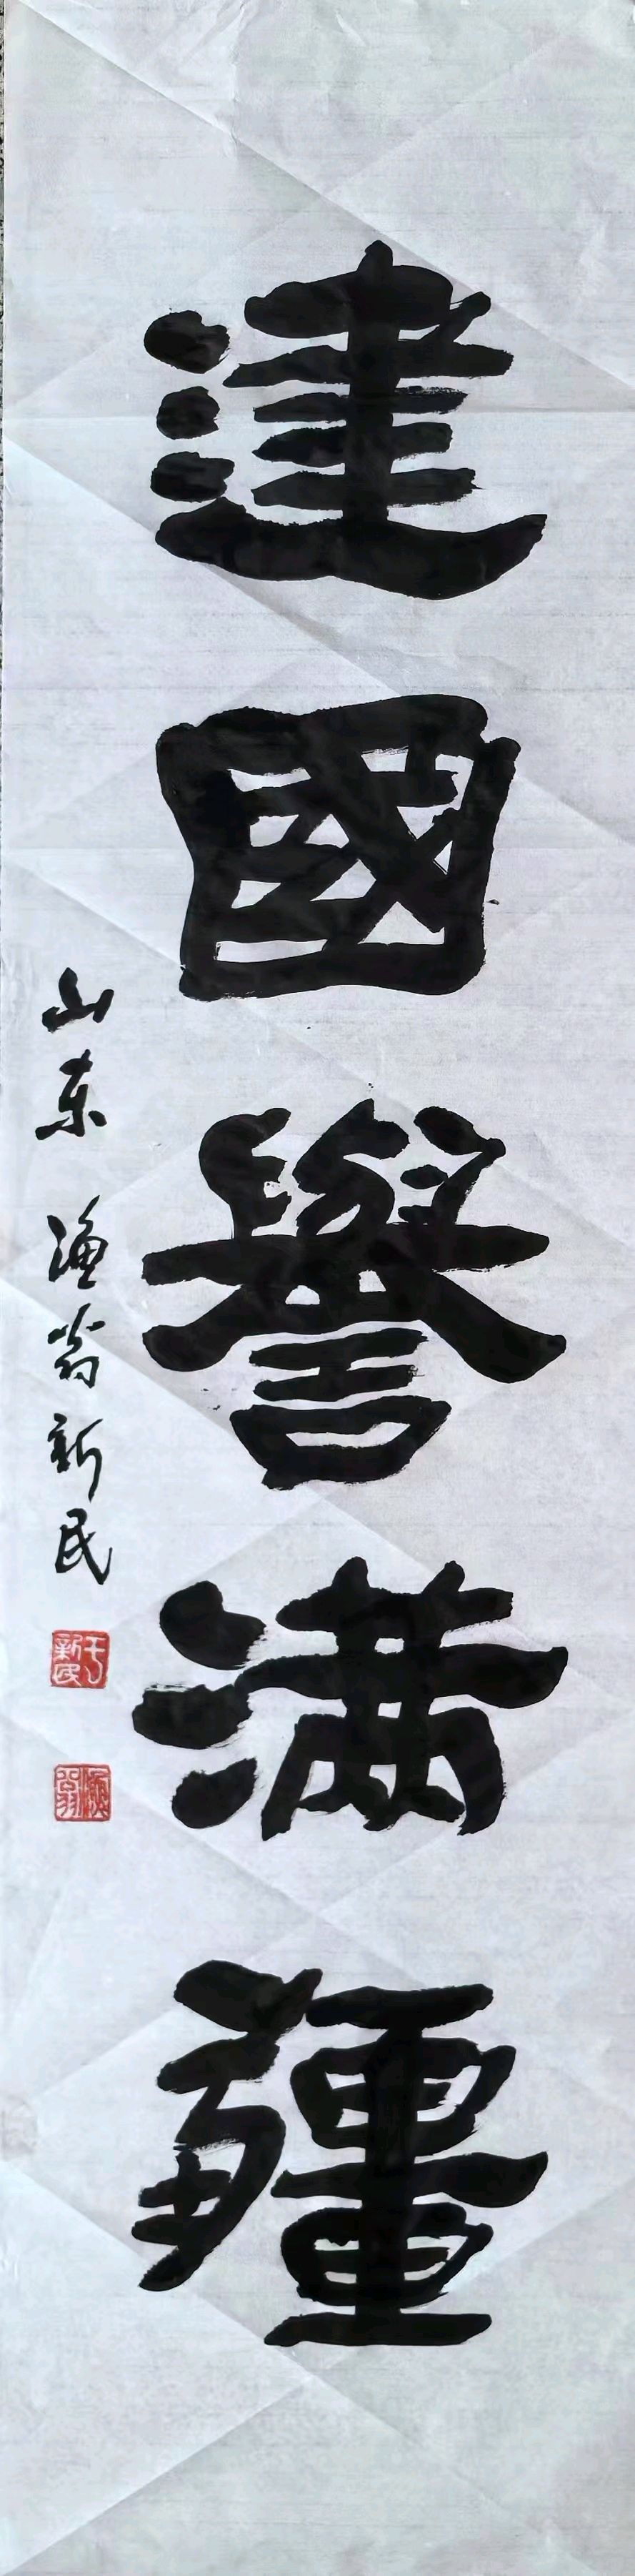 建國譽满疆
山东 渔翁新民
于新民
渔翁